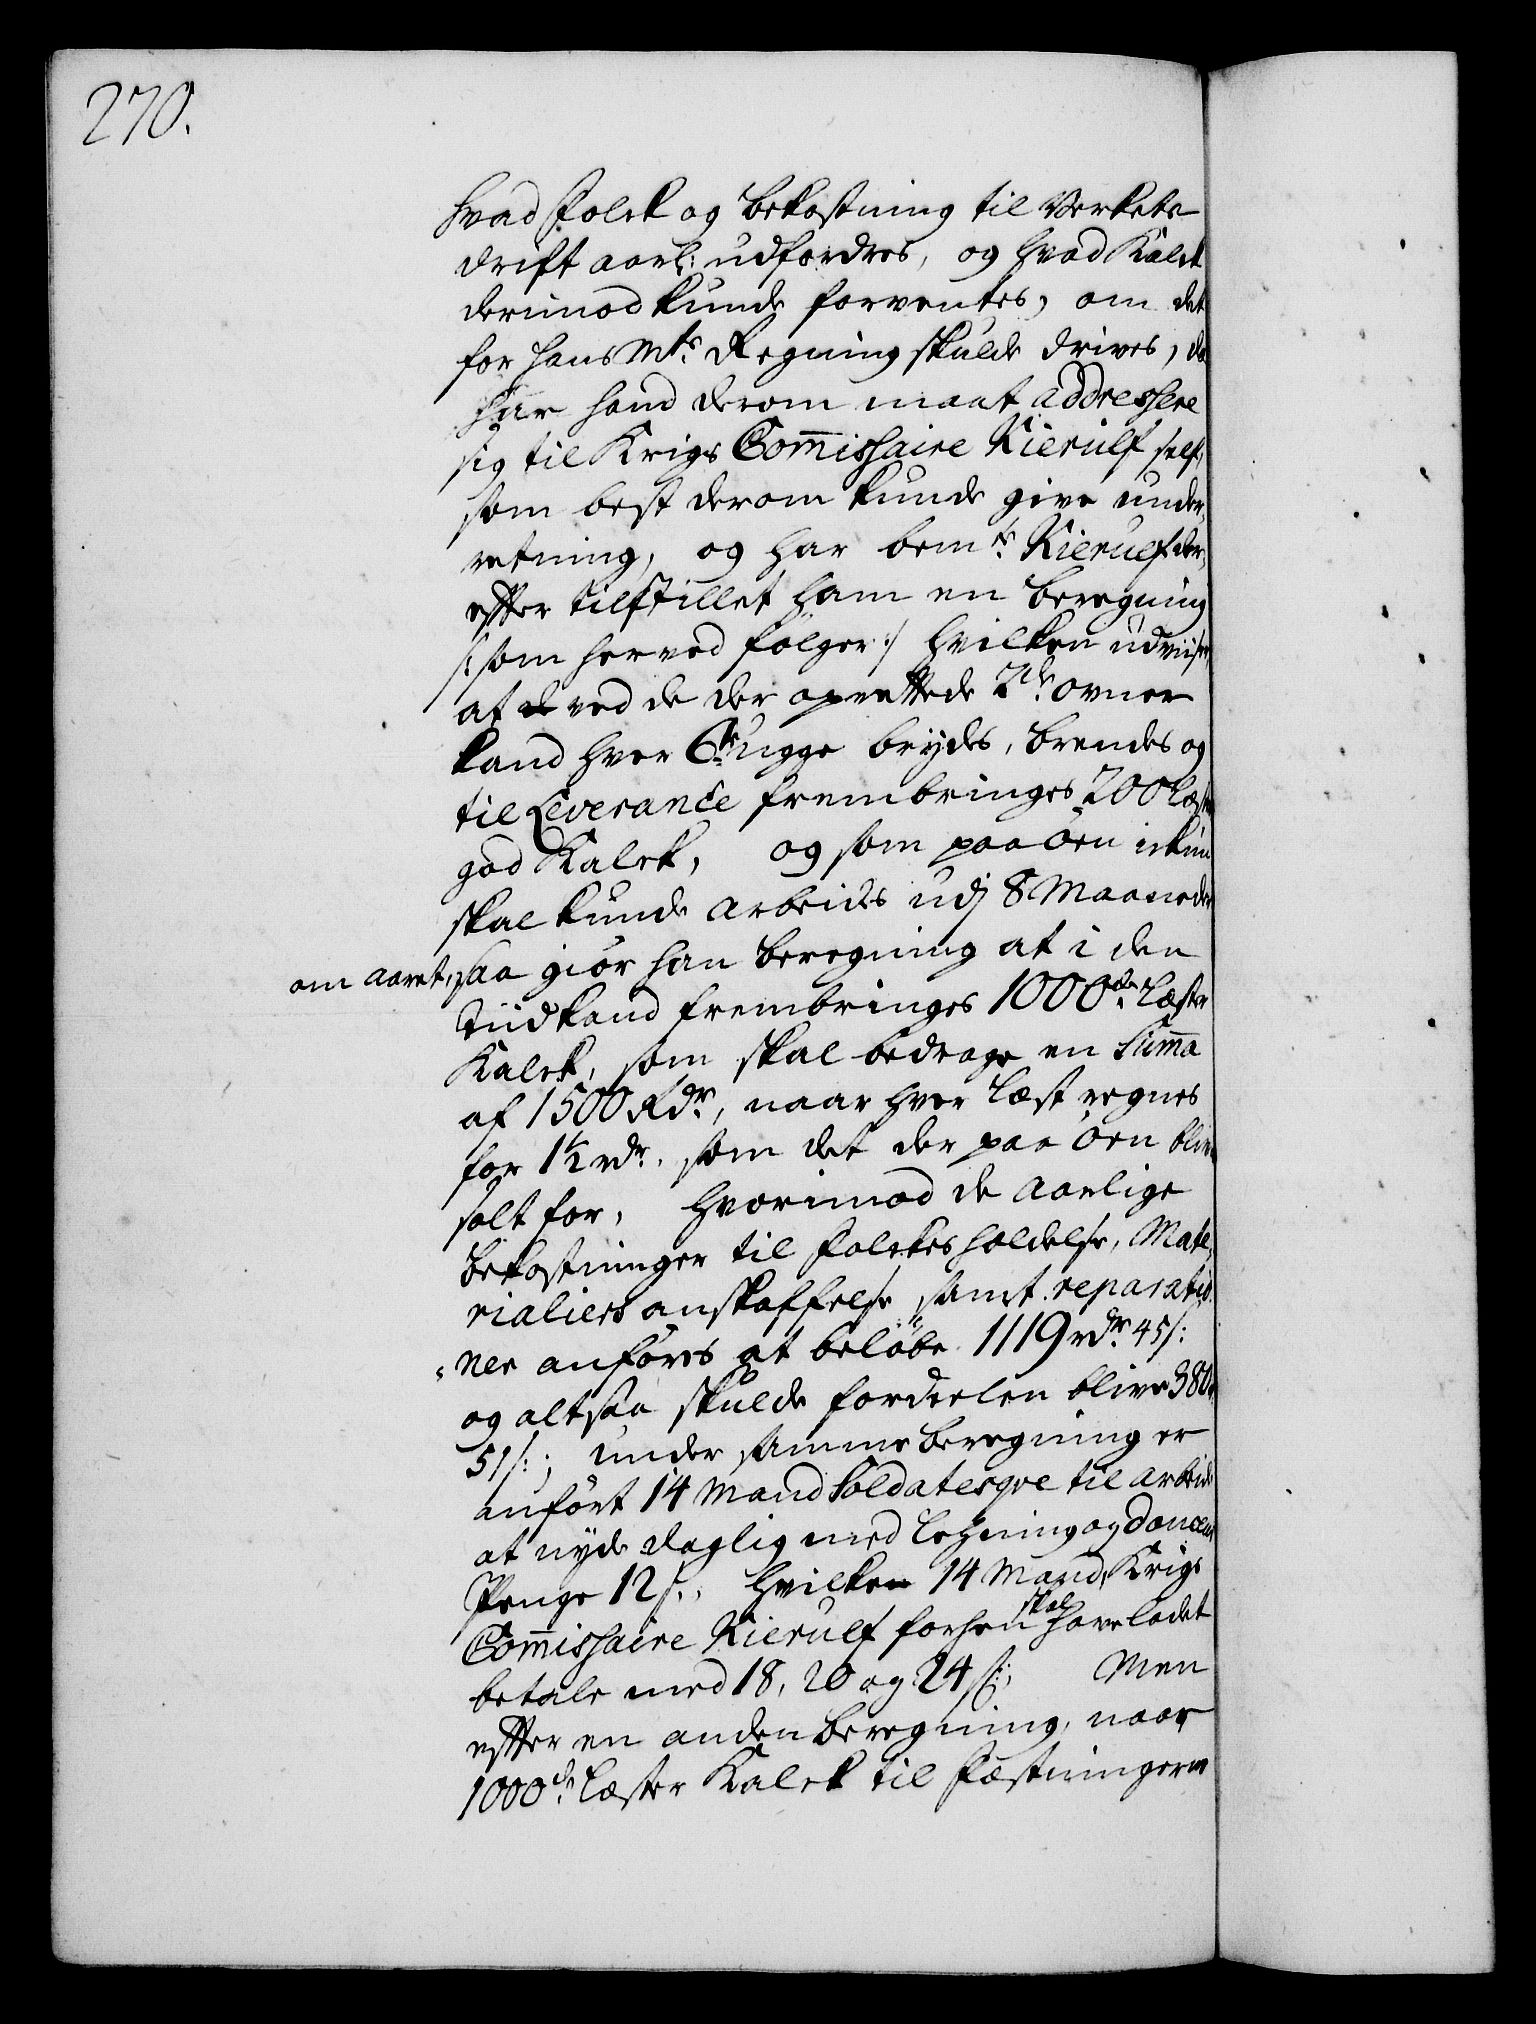 270.
hvad Folck og bekostning til Verkets
drift aarl: udfordres, og hvad Kalck
derimod kunde forventes, om det
for Hans Mts Regning skulde drives, da
har hand derom maat addreshere
sig til Krigs Com̄ishaire Kierulf self,
som best derom kunde give under-
retning, og har bemte Kierulf der-
effter tilstillet ham en beregning
/: som herved følger :/ hvilken udviiser,
at ved de der oprettede 2de ovner
kand hver 6te ugge brydes, brendes og
til Leverance frembringes 200 Læster
god Kalck, og som paa Øen ickun
skal kunde arbeides udj 8 Maaneder
om aaret, saa giør han beregning at i den
Tiid kand frembringes 1000de Læster
Kalck, som skal bedrage en Sum̄a
af 1500 Rdr, naar hver Læst regnes
for 1½ rdr. som det der paa Øen blive
solt for, hvorimod de aarlige
bekostninger til Folckes holdelse, Mate-
rialiers anskaffelse samt reparatio-
ner anføres at beløbe 1119 rdr 45 s:
og altsaa skulde fordeelen blive 380 r
51 s:; under samme beregning er
anført 14 Mand Soldatesqve til arbeide
at nyde daglig med Lehning og douceur
Penge 12 s., hvilke 14 Mand, Krigs
Com̄ishaire Kierulf forhen skal have ladet
betale med 18, 20 og 24 s:; Men
effter en anden beregning, naar
1000de Læster Kalck til Fæstningerne